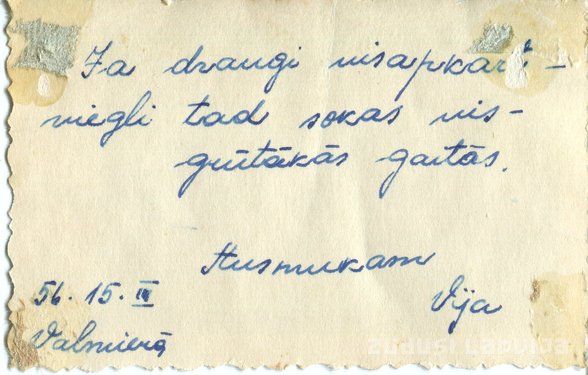 Ja draugi visapkārt –
viegli tad sokas vis-
grūtākās gaitās.
Husmukam
56. 15. IV
Vija
Valmierā
zudusi Latvija